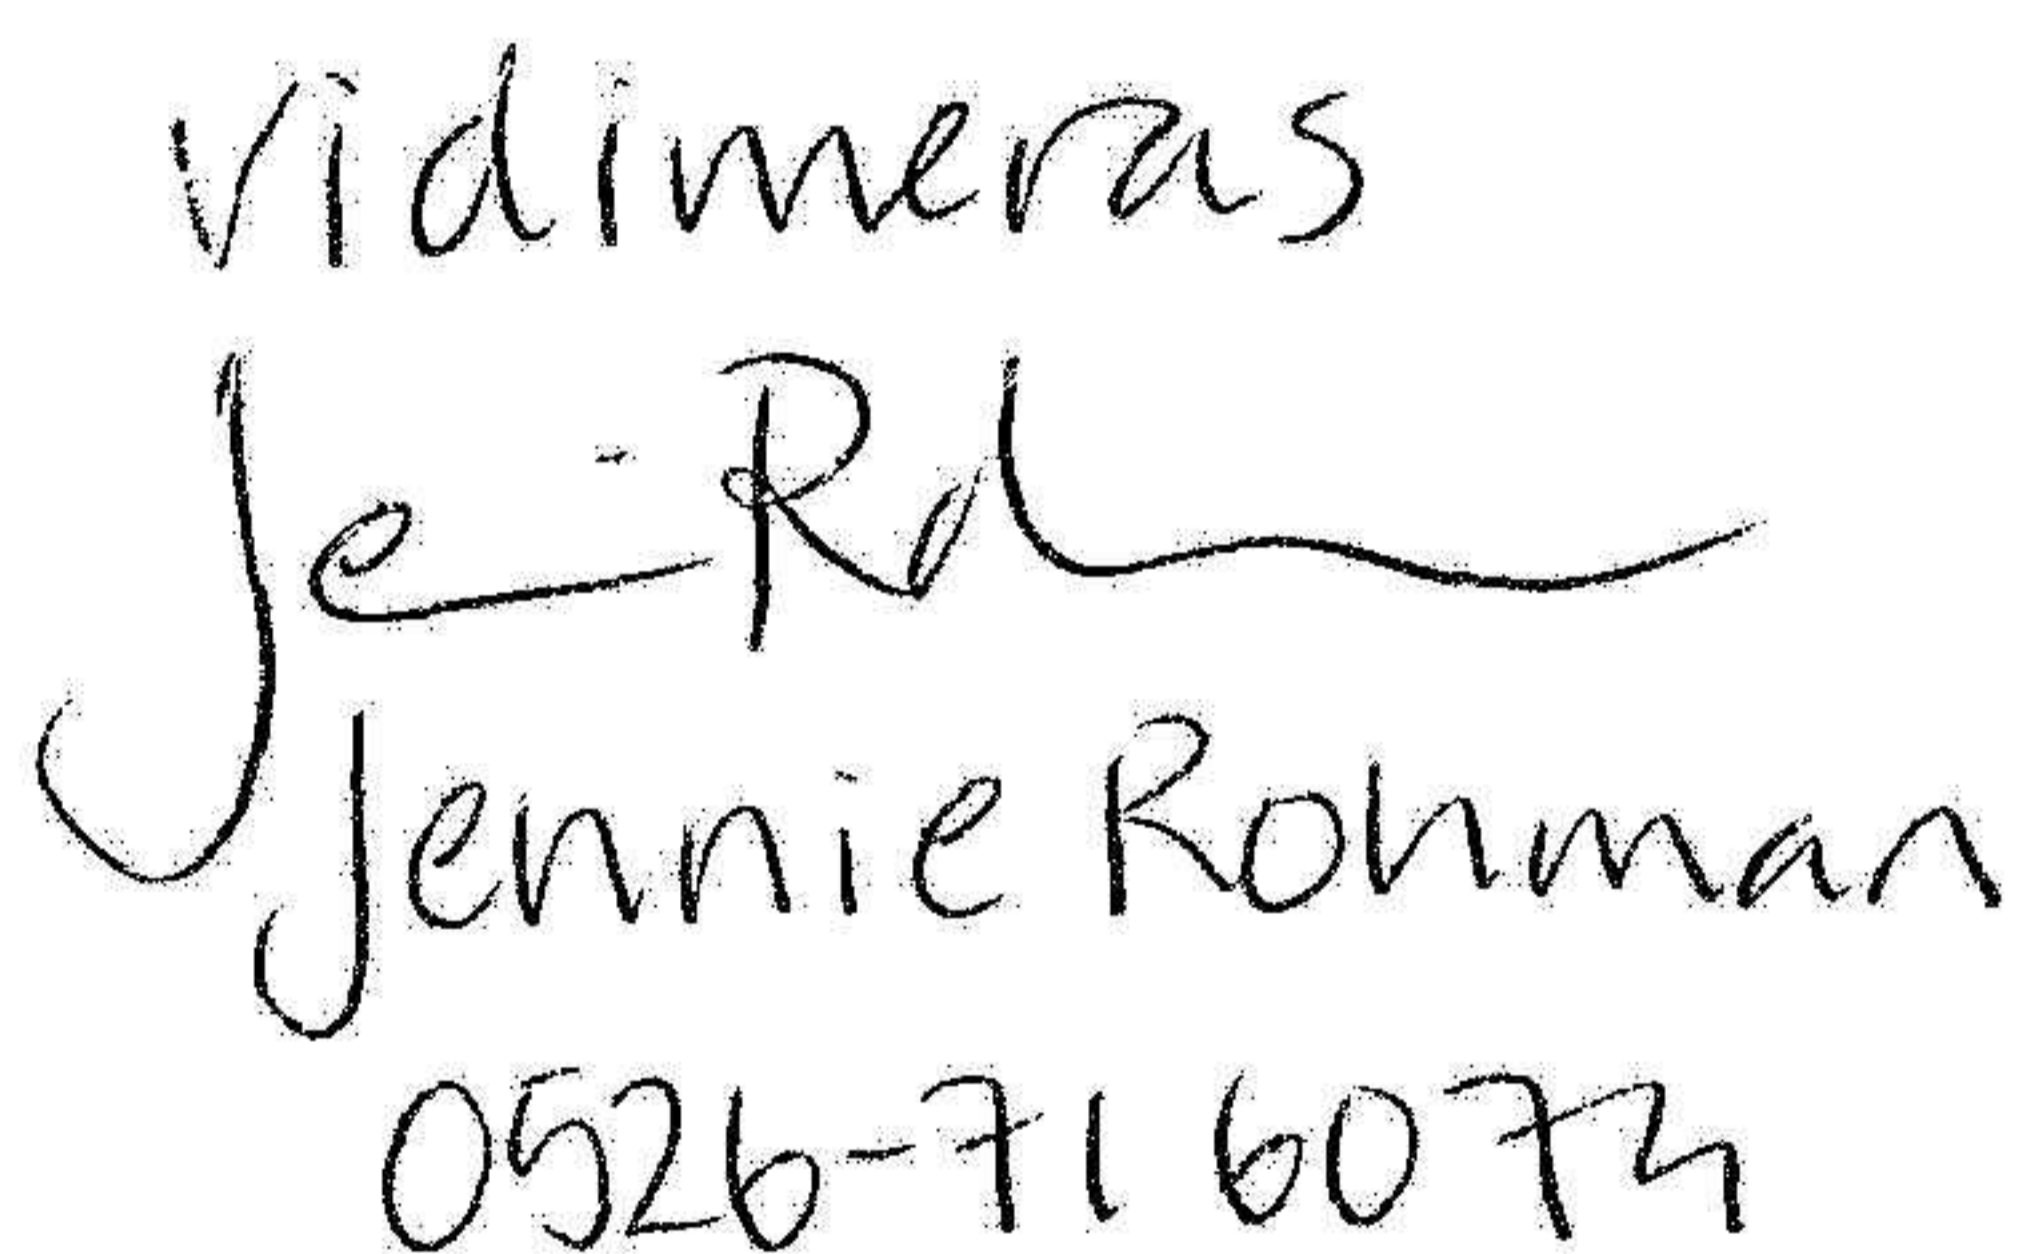 vidimeras
Jennie Rohman
0526-71 60 73